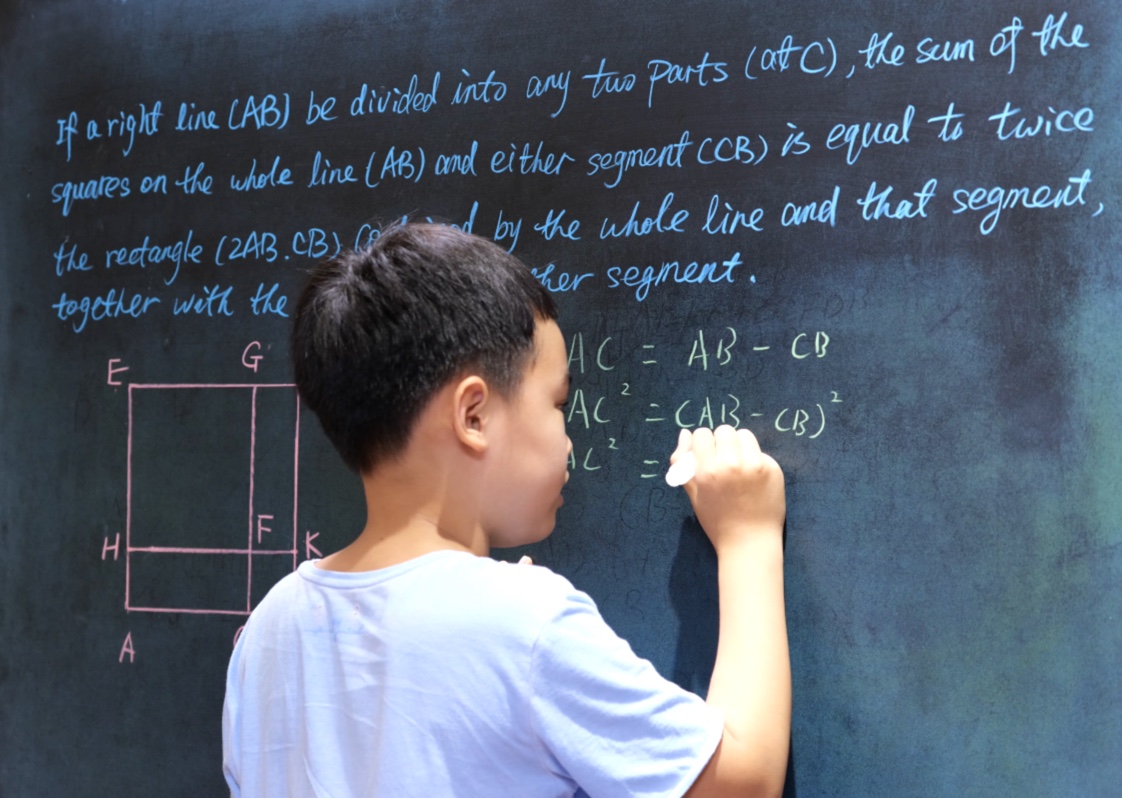 If a right line (AB) be divided into any two parts (at C), the sum of the
squares on the whole line (AB) and either segment (CB) is equal to twice
the rectangle (2AB.CB) by the whole line and that segment,
together with the segment.
AC = AB - CB
E G
AC² = (AB - CB)²
AC² =
F
H K
A